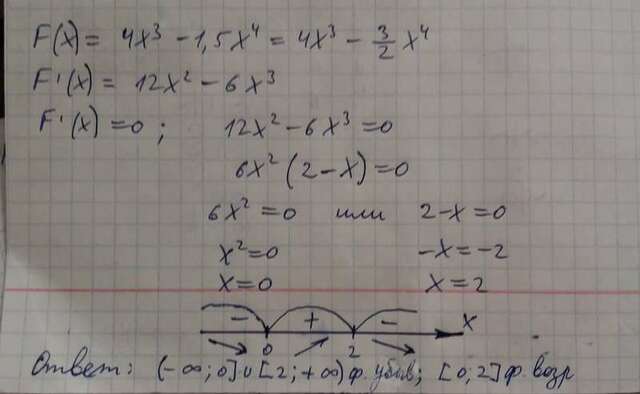 F(x) = 4x³ - 1,5x⁴ = 4x³ - 3/2 x⁴
F'(x) = 12x² - 6x³
F'(x) = 0 ; 12x² - 6x³ = 0
6x² (2 - x) = 0
6x² = 0 или 2 - x = 0
x² = 0 -x = -2
x = 0 x = 2
- + - x
0 2
Ответ: (-∞; 0] ∪ [2; +∞) ф. убыв; [0; 2] ф. возр